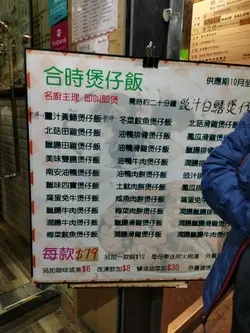 合時煲仔飯
供應期10月至
名廚主理 即叫即煲
需時約二十分鐘
豉汁白鱔煲仔
薑汁黃鱔煲仔飯
冬菜鯪魚煲仔飯
北菇滑雞煲仔飯
北菇田雞煲仔飯
油鴨滑雞煲仔飯
鳳爪滑雞煲仔飯
臘腸田雞煲仔飯
油鴨排骨煲仔飯
臘腸滑雞煲仔飯
美味雙腸煲仔飯
油鴨臘腸煲仔飯
潤腸滑雞煲仔飯
南安油鴨煲仔飯
油鴨牛肉煲仔飯
豉汁排
臘味四寶煲仔飯
土魷肉餅煲仔飯
鳳爪排
窩蛋免牛煲仔飯
鹹魚肉餅煲仔飯
臘腸排
臘腸牛肉煲仔飯
梅菜肉餅煲仔飯
潤腸排
梅菜鯪魚煲仔飯
潤腸牛肉煲仔飯
每款$79
另加一款餸$12
每母奉送明火例湯
外賣
另加咖啡或茶$6
改凍飲加$8
轉油菜加$30
外賣